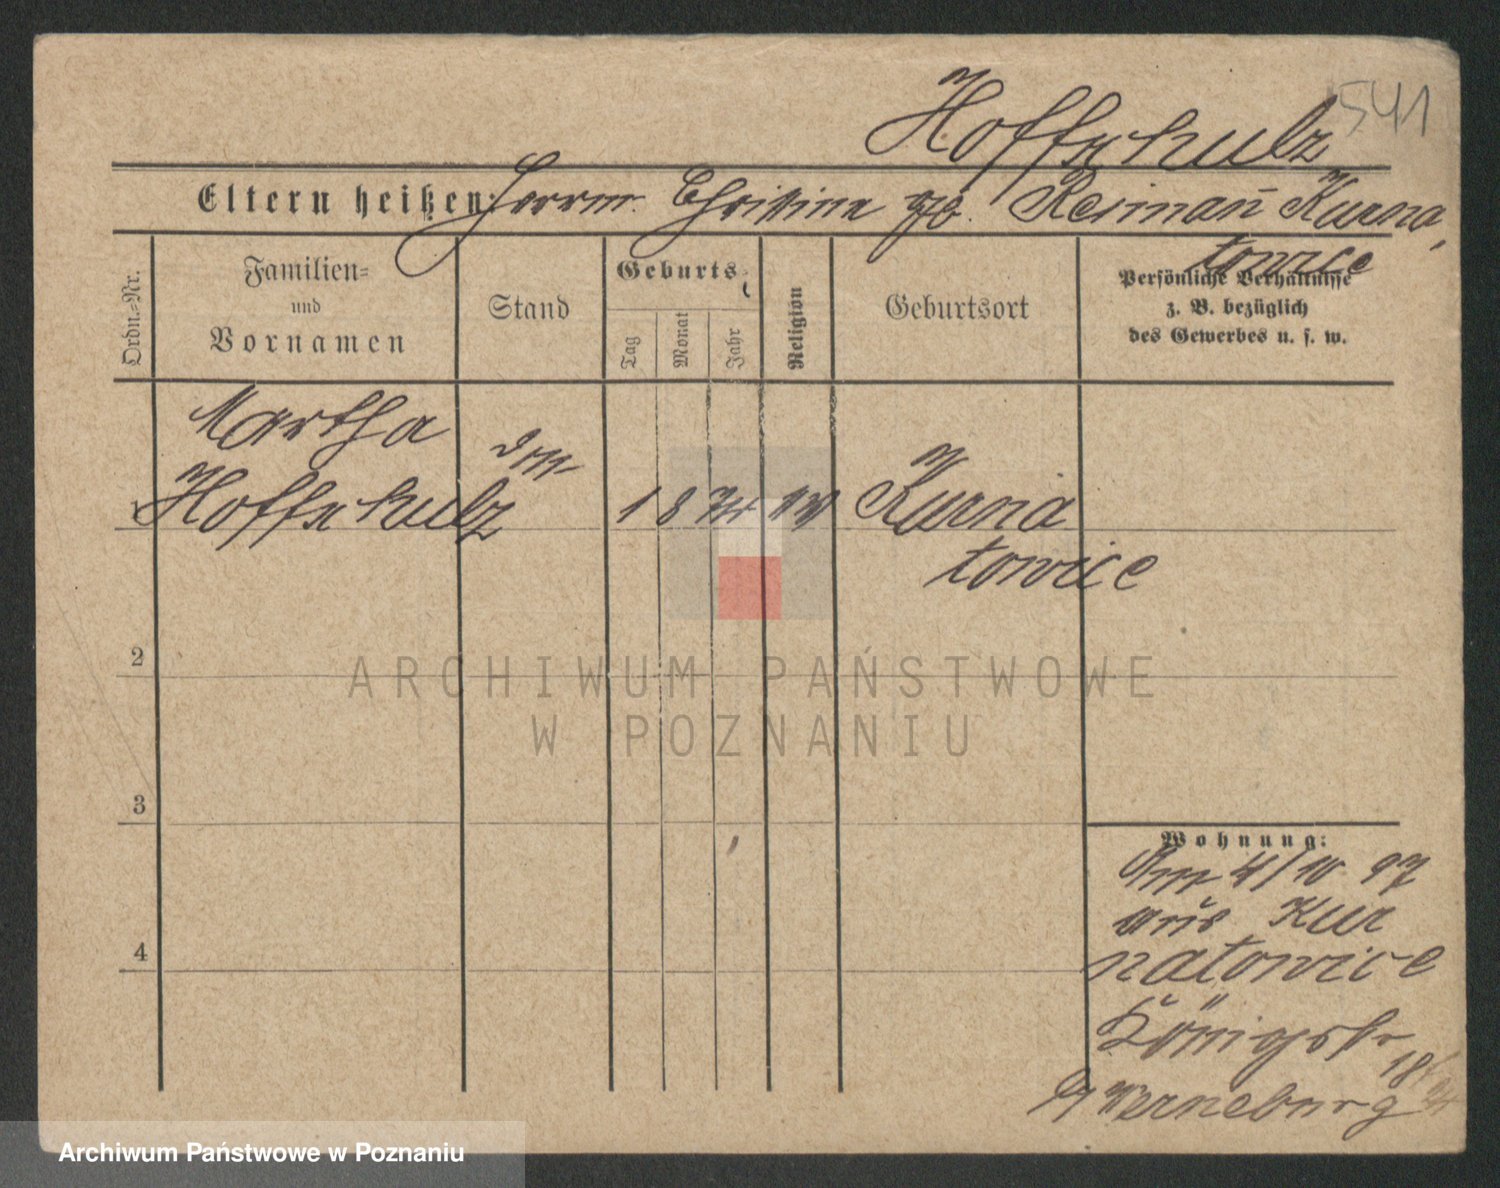 Hoffschulz 541
Eltern heißen: Herrm. Christine geb. Reimañ Kurna
towice
Ordn.-Nr.
Familien-
und
Vornamen
Stand
Geburts-
Tag
Monat
Jahr
Religion
Geburtsort
Persönliche Verhältnisse
z. B. bezüglich
des Gewerbes u. s. w.
Martha
Hoffschulz
1 8 74
Kurna
towice
2
3
4
Wohnung:
4/10 97
aus Kur
natowice
Königstr
18
b/ Werneburg
ARCHIWUM PAŃSTWOWE
W POZNANIU
Archiwum Państwowe w Poznaniu